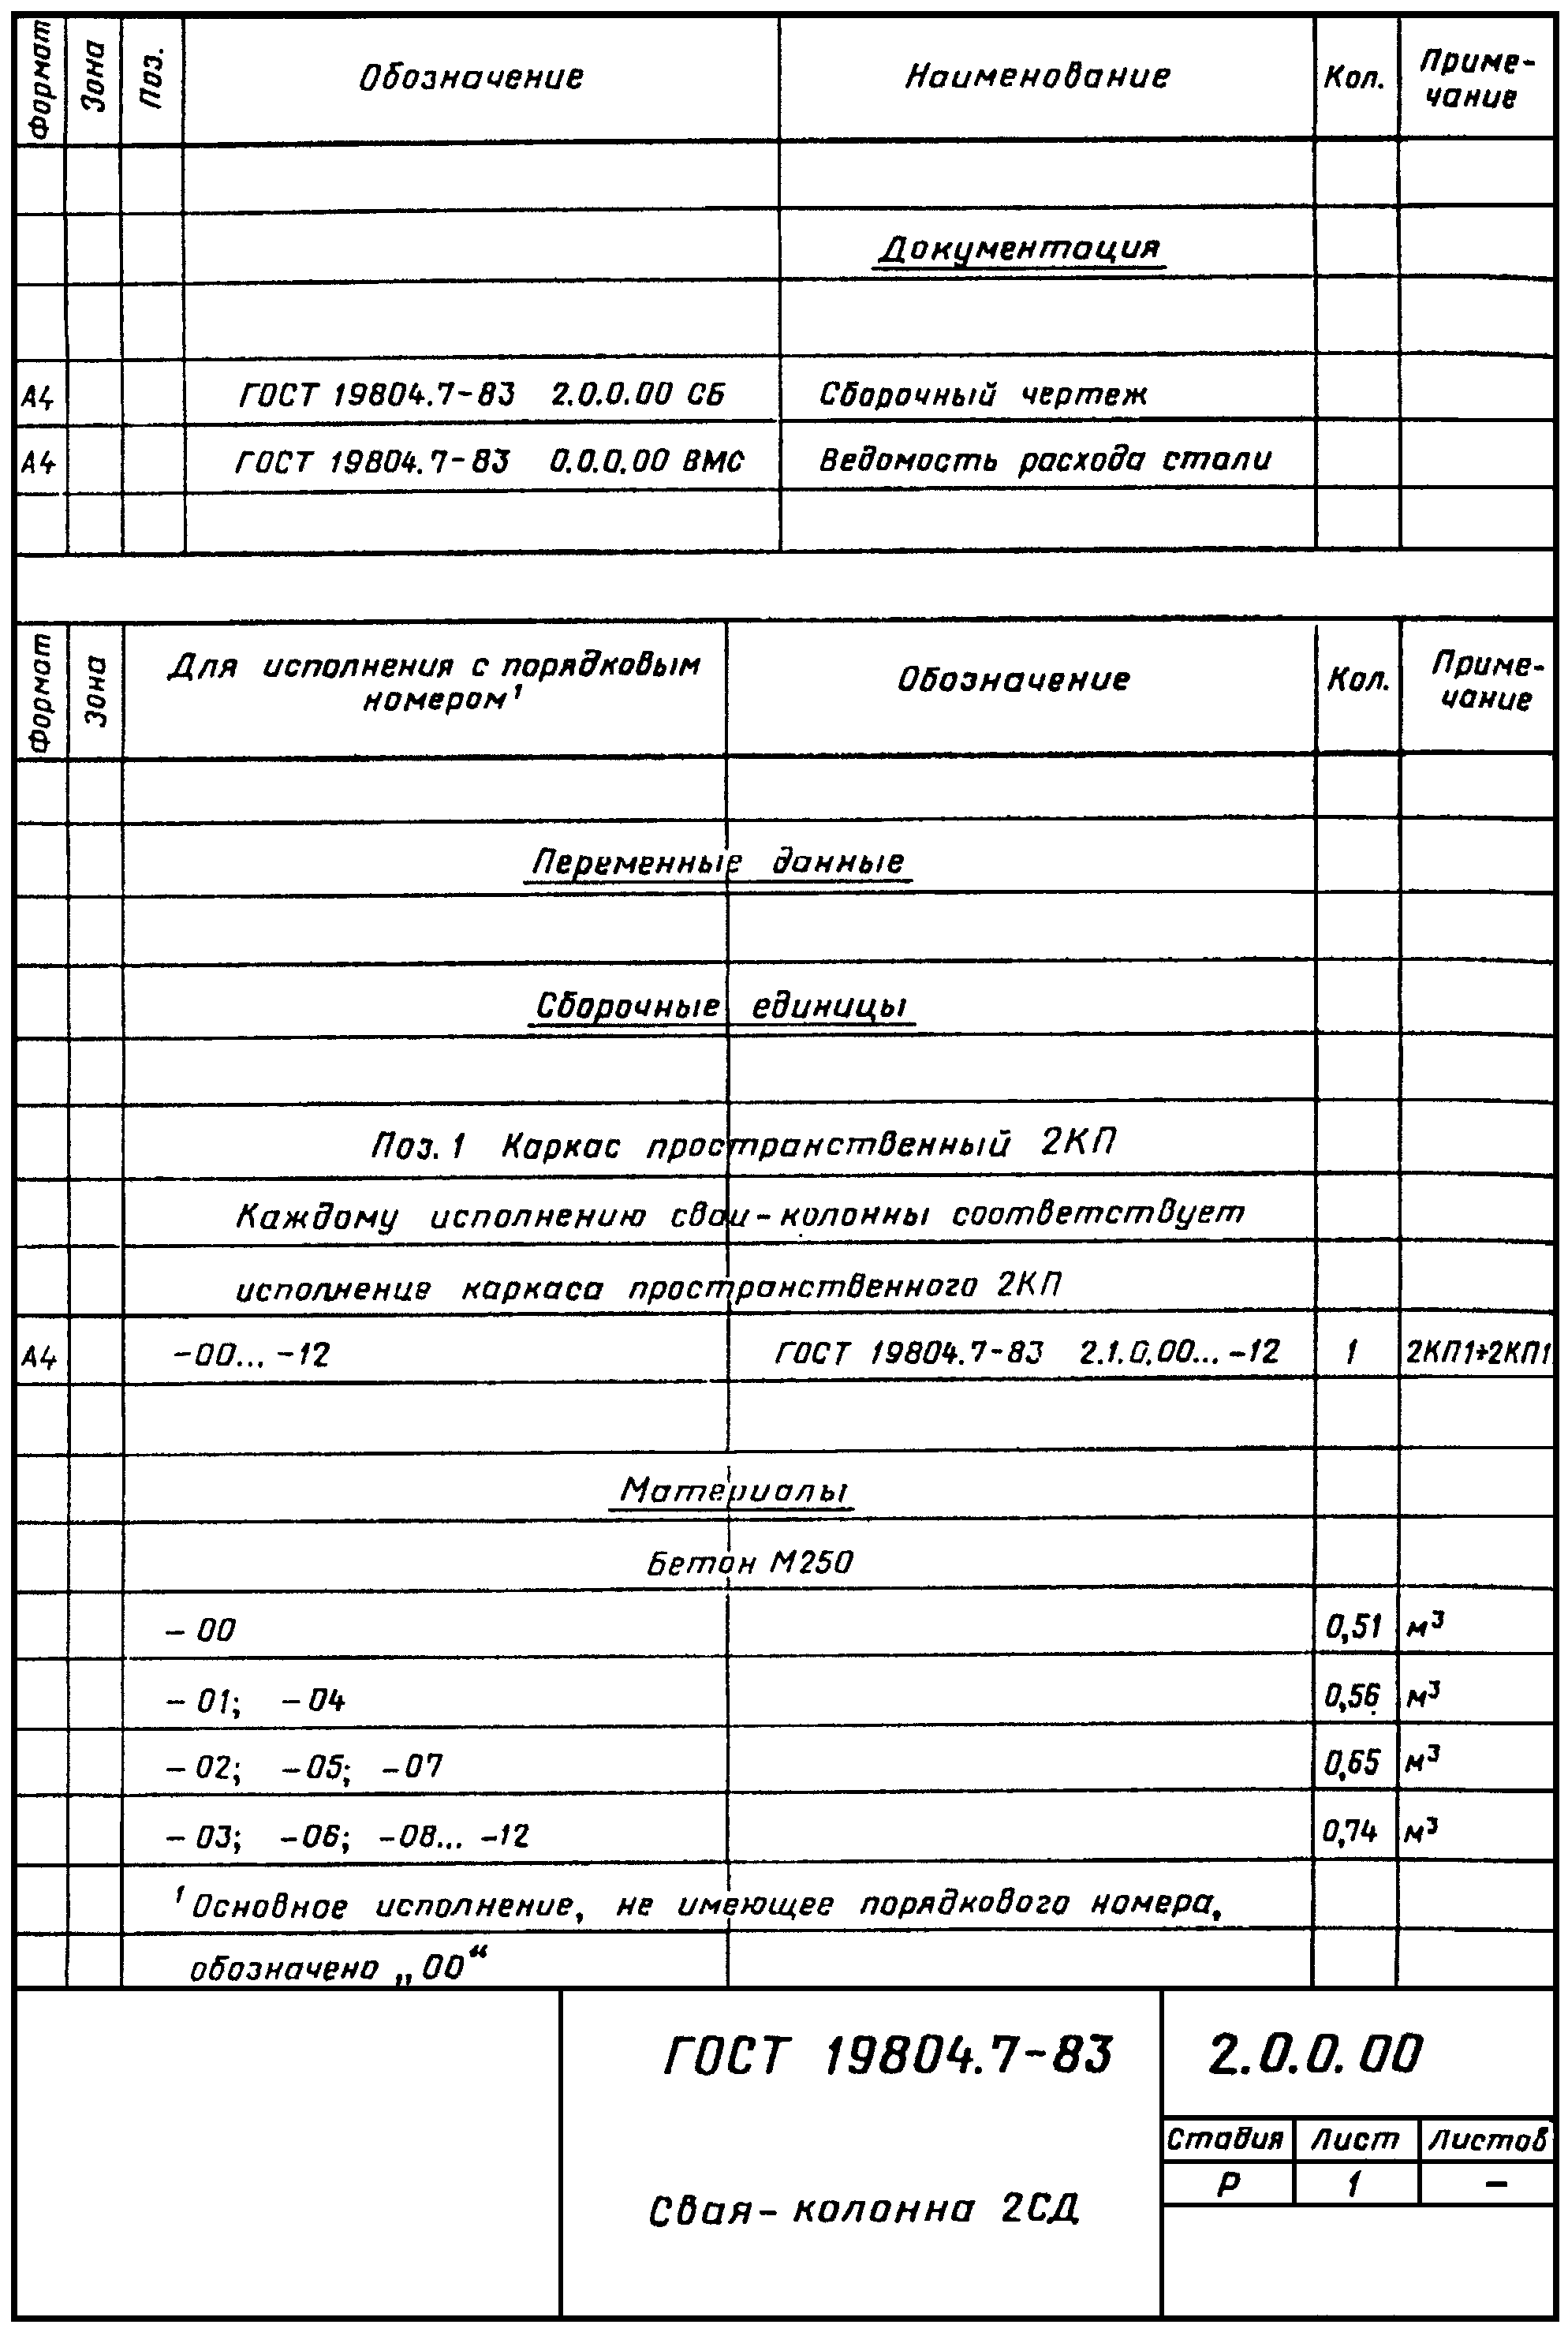 Формат Зона Поз. Обозначение Наименование Кол. Приме-
чание
Документация
А4 ГОСТ 19804.7-83 2.0.0.00 СБ Сборочный чертеж
А4 ГОСТ 19804.7-83 0.0.0.00 ВМС Ведомость расхода стали
Формат Зона Для исполнения с порядковым Обозначение Кол. Приме-
номером¹ чание
Переменные данные
Сборочные единицы
Поз. 1 Каркас пространственный 2КП
Каждому исполнению сваи-колонны соответствует
исполнение каркаса пространственного 2КП
А4 -00... -12 ГОСТ 19804.7-83 2.1.0.00... -12 1 2КП1÷2КП1
Материалы
Бетон М250
- 00 0,51 м³
- 01; -04 0,56 м³
- 02; -05; -07 0,65 м³
- 03; -06; -08... -12 0,74 м³
¹ Основное исполнение, не имеющее порядкового номера,
обозначено „00“
ГОСТ 19804.7-83 2.0.0.00
Стадия Лист Листов
Р 1 –
Свая- колонна 2СД